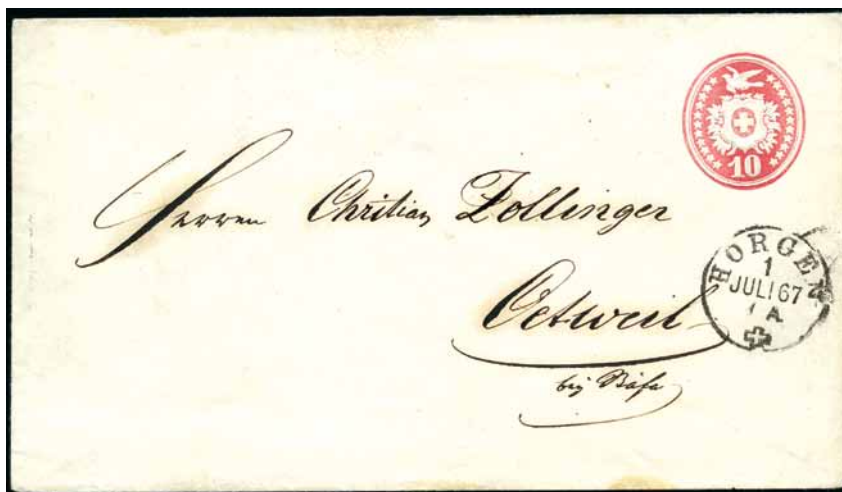 10
Herren Christian Zollinger
HORGEN
1
JULI 67
A
Oetweil
bey Stäfa